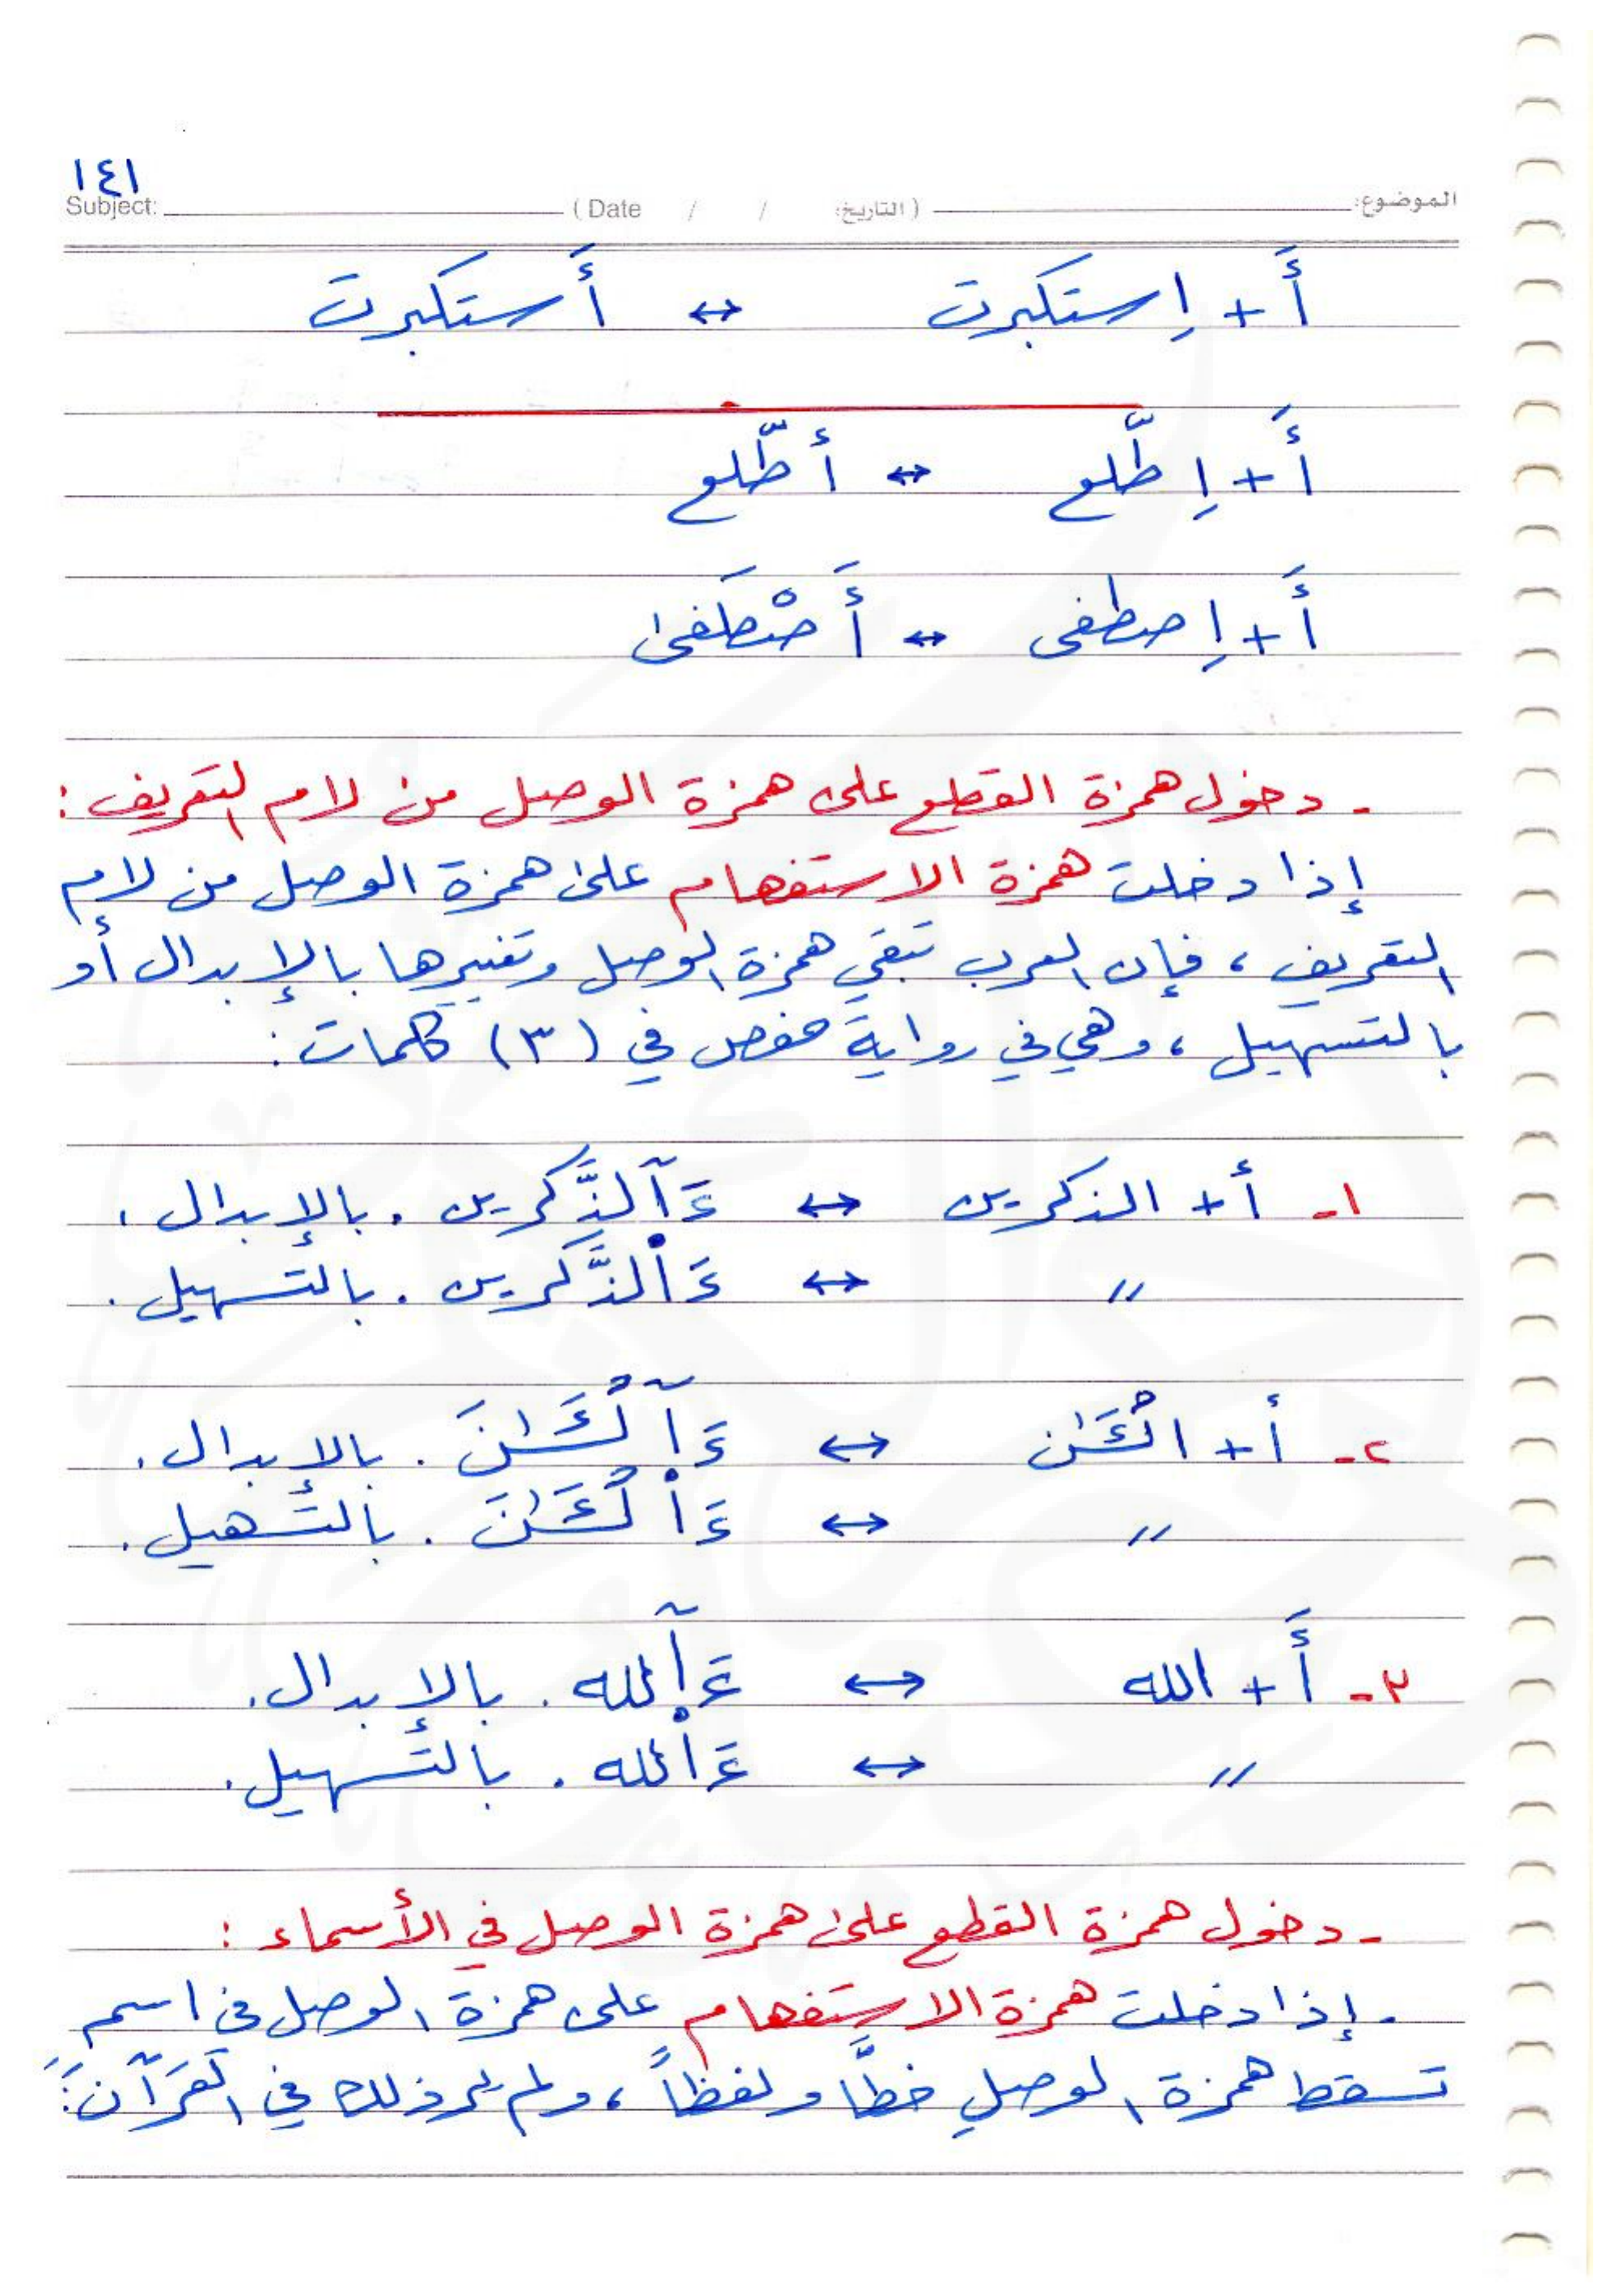 ١٤١
Subject: (Date / / التاريخ) الموضوع:
أَ + اِستكبرت ↔ أَستكبرت
أَ + اِطَّلع ↔ أطَّلع
أَ + اِصطفى ↔ أَصْطَفىٰ
- دخول همزة القطع على همزة الوصل من لام التعريف :
إذا دخلت همزة الاستفهام علىٰ همزة الوصل من لام
التعريف ، فإن العرب تبقي همزة الوصل وتغيرها بالإبدال أو
بالتسهيل ، وهي في رواية حفص في (٣) كلمات :
١- أ + الذكرين ↔ ءَآلذَّكرين . بالإبدال .
〃 ↔ ءَا۬لذَّكرين . بالتَّسهيل .
٢- أ + الْـَٔـٰن ↔ ءَآلْـَٔـٰنَ . بالإبدال .
〃 ↔ ءَا۬لْـَٔـٰنَ . بالتَّسهيل .
٣- أَ + الله ↔ ءَآلله . بالإبدال .
〃 ↔ ءَا۬لله . بالتَّسهيل .
- دخول همزة القطع علىٰ همزة الوصل في الأسماء :
- إذا دخلت همزة الاستفهام على همزة الوصل في اسم
تسقط همزة الوصلِ خطَّاً ولفظاً ، ولم يرد ذلك في القرآن :